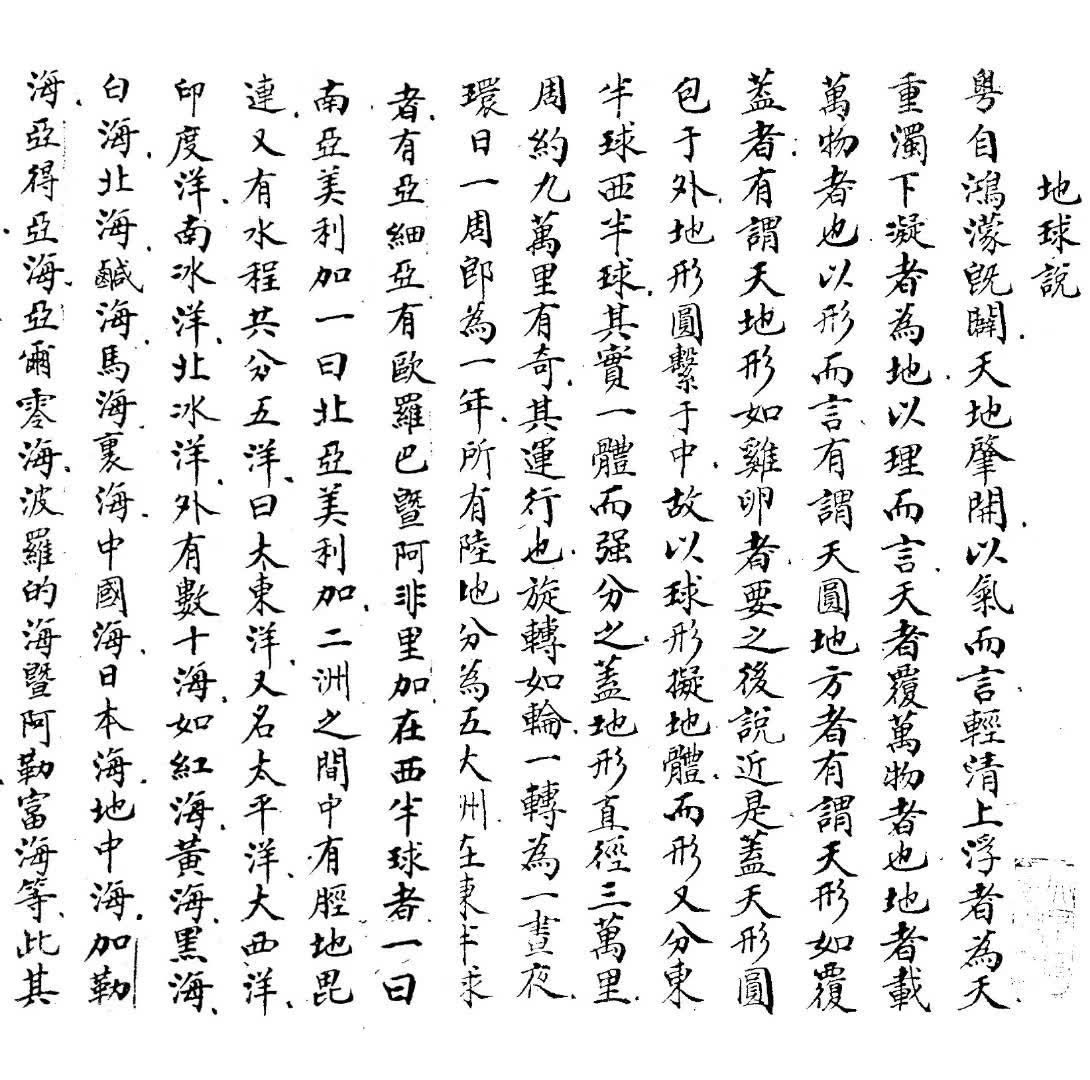 地球說
粤自鴻濛旣闢天地肇開以氣而言輕清上浮者為天
重濁下凝者為地以理而言天者覆萬物者也地者載
萬物者也以形而言有謂天圓地方者有謂天形如覆
蓋者有謂天地形如雞卵者要之後說近是蓋天形圓
包于外地形圓繫于中故以球形擬地體而形又分東
半球西半球其實一體而强分之蓋地形直徑三萬里
周約九萬里有奇其運行也旋轉如輪一轉為一晝夜
環日一周即為一年所有陸地分為五大洲在東半球
者有亞細亞有歐羅巴暨阿非里加在西半球者一曰
南亞美利加一曰北亞美利加二洲之間中有脛地毘
連又有水程共分五洋曰大東洋又名太平洋大西洋
印度洋南冰洋北冰洋外有數十海如紅海黃海黑海
白海北海鹹海馬海裏海中國海日本海地中海加勒
海亞得亞海亞爾零海波羅的海暨阿勒富海等此其